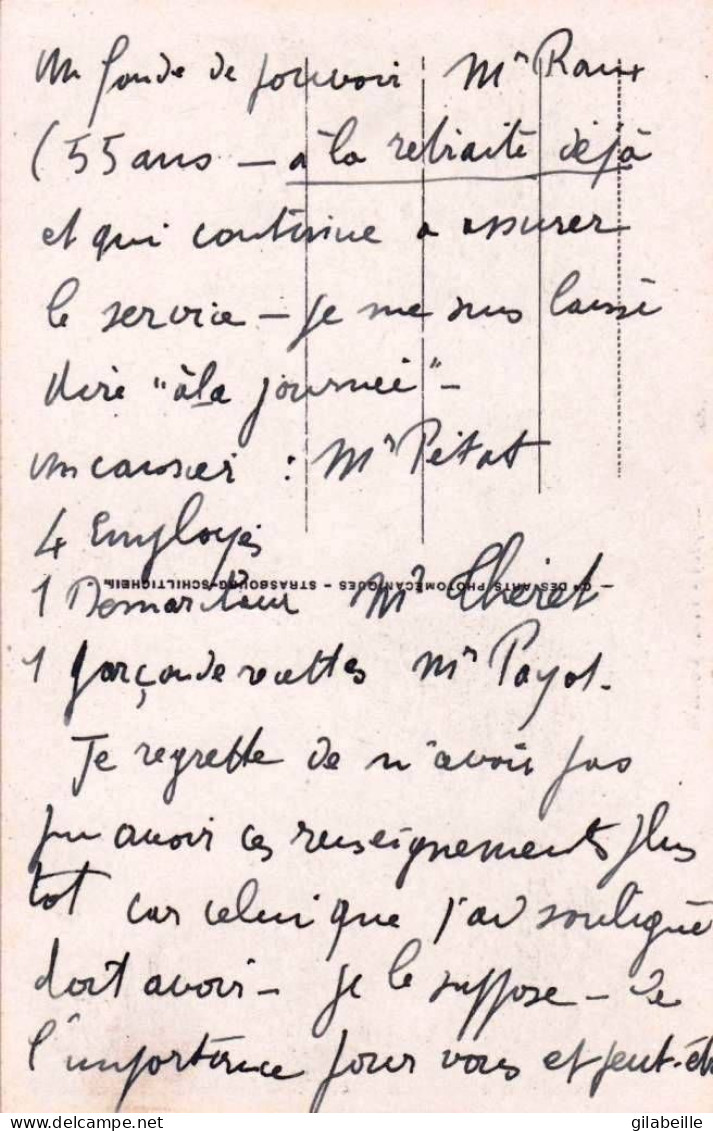 un fondé de pouvoir Mr Raux
(55 ans – à la retraite déjà
et qui continue a assurer
le service – je me suis laissé
dire "à la journée" –
un caissier : Mr Petat
4 Employés
1 Demarcheur Mr Theret
Cie DES ARTS PHOTOMÉCANIQUES - STRASBOURG-SCHILTIGHEIM
1 garçon de recettes Mr Payot.
Je regrette de n'avoir pas
pu avoir ces renseignements plus
tot car celui que j'ai souligné
doit avoir – je le suppose – de
l'importance pour vous et peut-êt
delcampe.net
gilabeille